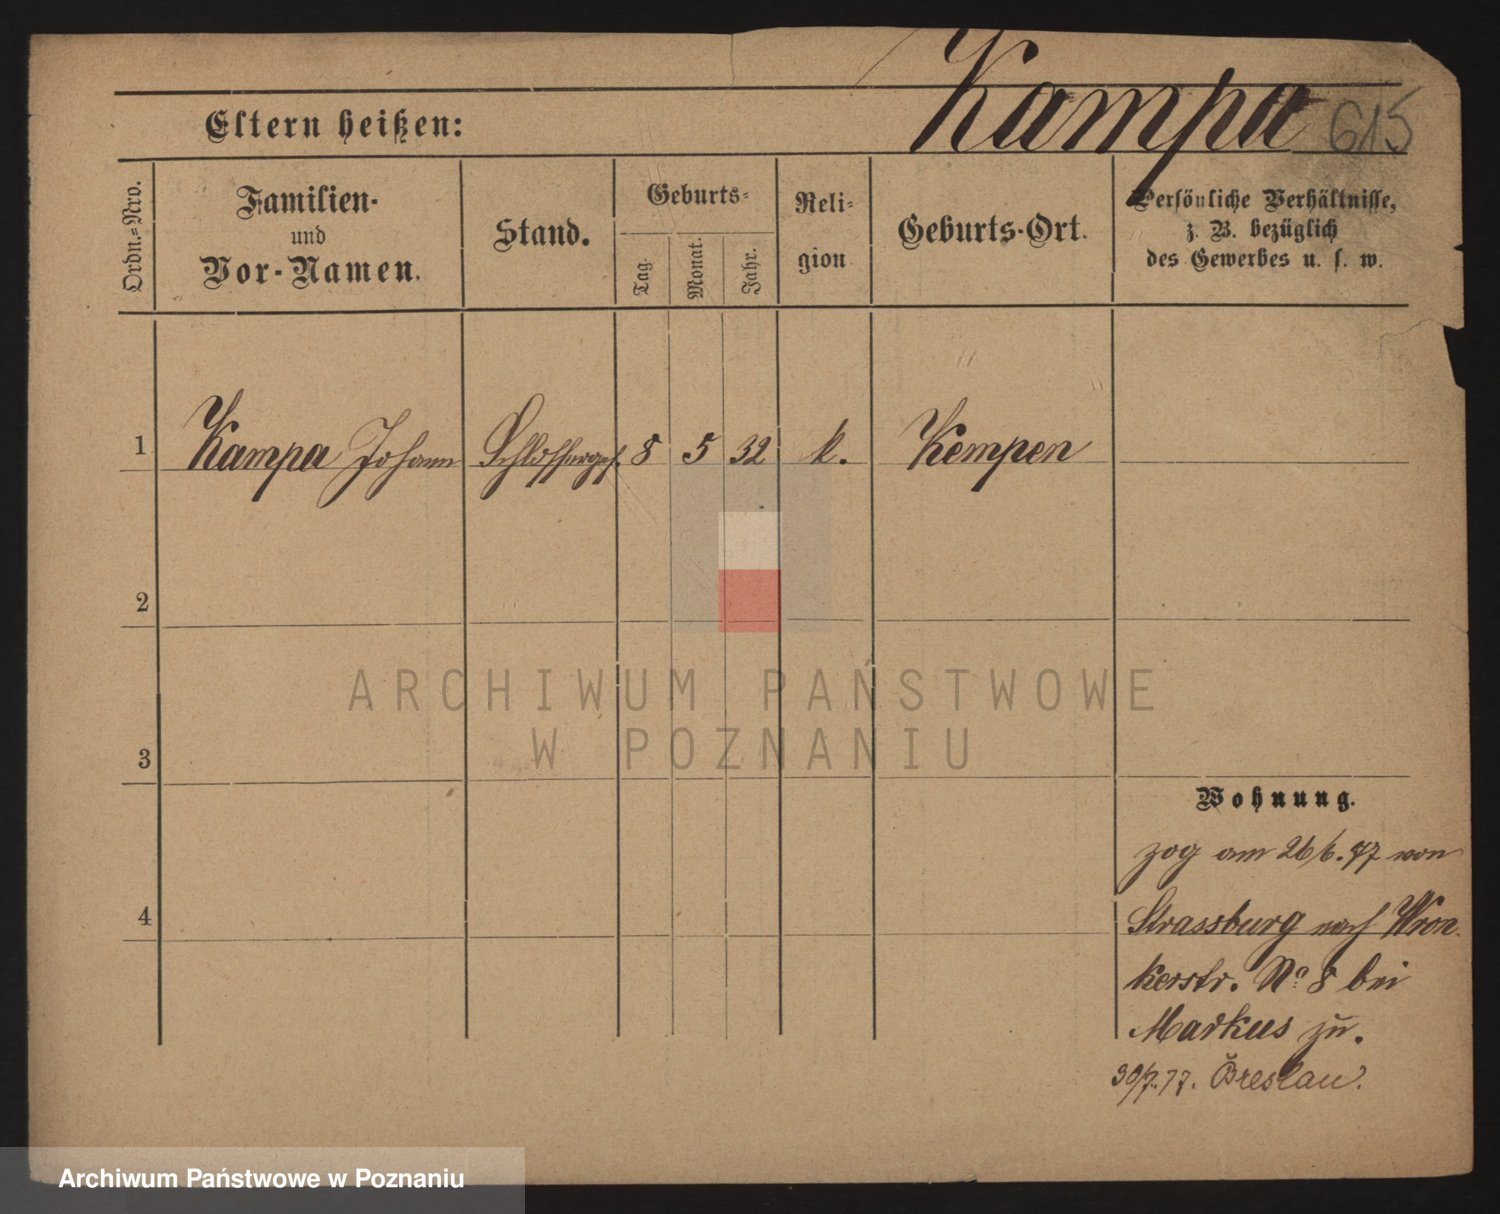 Kampa 615
Eltern heißen:
Ordn.=Nro.
Familien-
und
Vor-Namen.
Stand.
Geburts=
Tag.
Monat.
Jahr.
Reli=
gion
Geburts-Ort.
Persönliche Verhältnisse,
z. B. bezüglich
des Gewerbes u. s. w.
1 Kampa Johann Schlosserges. 8 5 32 k. Kempen
2
3
4
Wohnung.
zog am 26/6. 77 von
Strassburg nach Wron-
kerstr. No 8 bei
Markus zu.
30/7. 77. Breslau.
ARCHIWUM PAŃSTWOWE
W POZNANIU
Archiwum Państwowe w Poznaniu